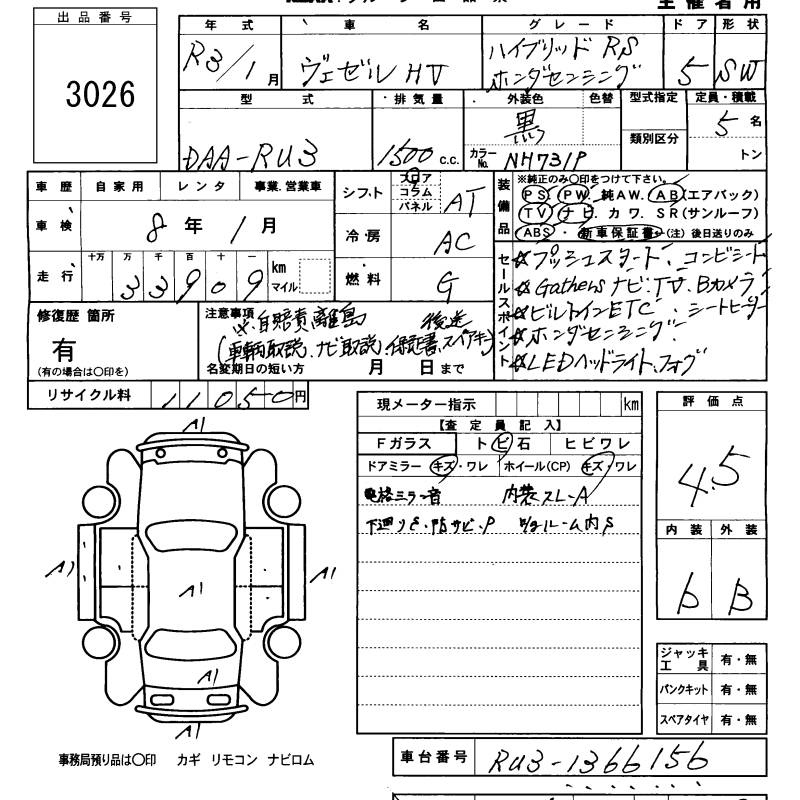 主催者用
出品番号
3026
年式 車名 グレード ドア 形状
R3/1月 ヴェゼル HV ハイブリッド RS ホンダセンシング 5 SW
型式 排気量 外装色 色替 型式指定 定員・積載
DAA-RU3 1500 c.c. 黒 カラーNo. NH731P 類別区分 5名 トン
車歴 自家用 レンタ 事業.営業車
車検 8年 1月
走行 十万 万 千 百 十 一 km マイル
33909
シフト フロア コラム パネル AT
冷房 AC
燃料 G
装備品 ※純正のみ〇印をつけて下さい。
PS. PW. 純AW. AB(エアバッグ)
TV ナビ. カワ. SR(サンルーフ)
ABS・新車保証書(注)後日送りのみ
セールスポイント
☆プッシュスタート、コンビシート
☆Gathersナビ.TV.Bカメラ
☆ビルトインETC、シートヒーター
☆ホンダセンシング
☆LEDヘッドライト.フォグ
修復歴 箇所
有
(有の場合は〇印を)
注意事項
※自賠責離島 後送
(車輌取説、ナビ取説、保証書、スペアキー)
名変期日の短い方 月 日まで
リサイクル料 11050円
現メーター指示 km
【査定員記入】
Fガラス トビ石 ヒビワレ
ドアミラー キズ・ワレ ホイール(CP) キズ・ワレ
電格ミラー音 内装スレ-A
下廻りS・防サビ・P ルーム内S
評価点
4.5
内装 外装
b B
A1
A1 A1 A1
A1
A1
ジャッキ工具 有・無
パンクキット 有・無
スペアタイヤ 有・無
事務局預り品は〇印 カギ リモコン ナビロム
車台番号 RU3-1366156